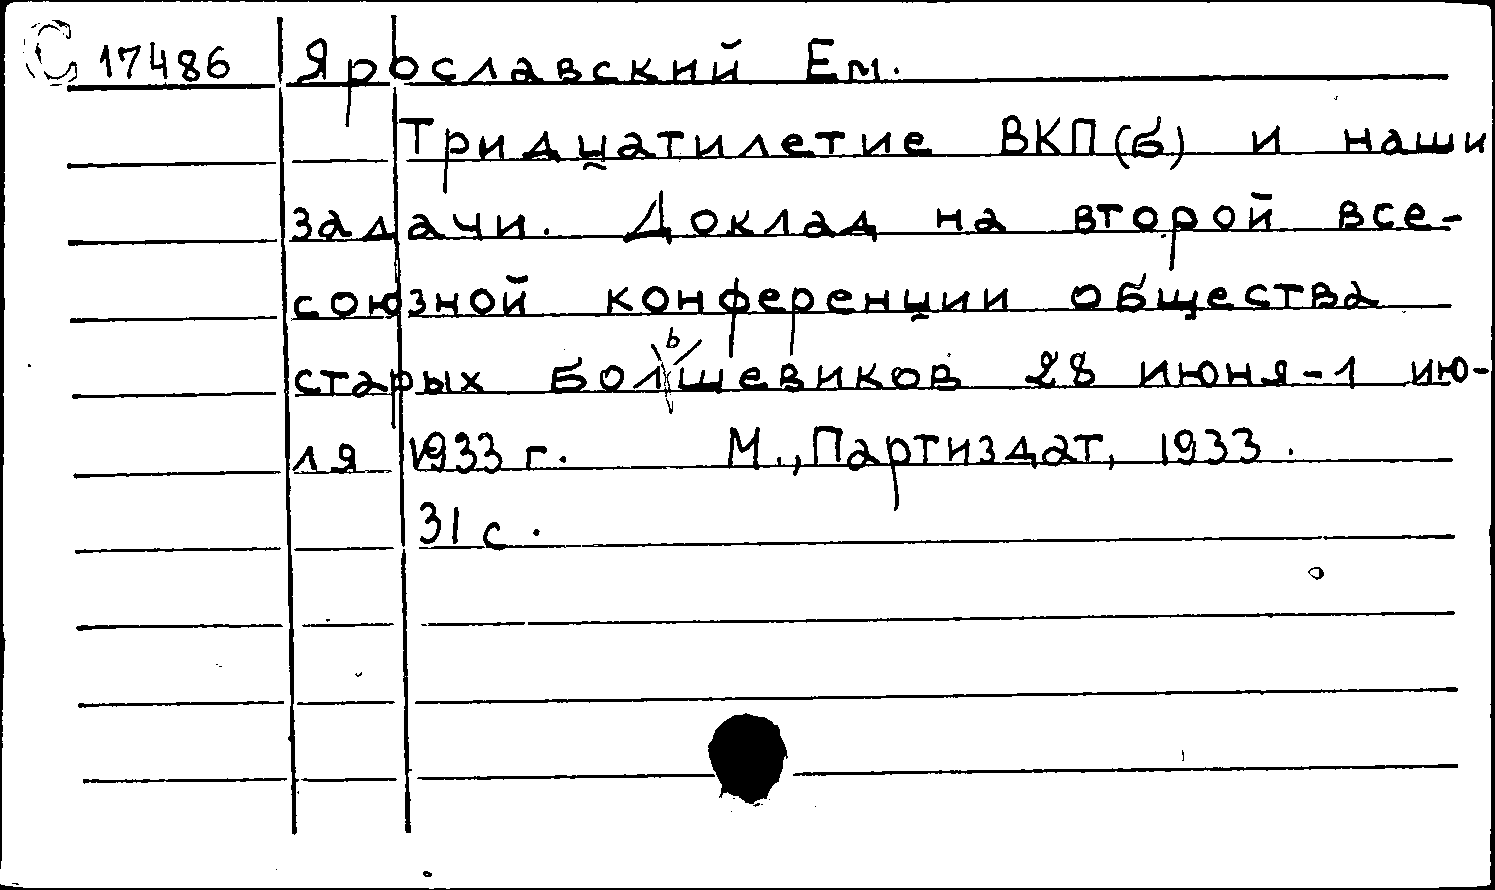 С 17486 Ярославский Ем.
Тридцатилетие ВКП(б) и наши
задачи. Доклад на второй все-
союзной конференции общества
старых большевиков 28 июня-1 ию-
ля 1933 г. М., Партиздат, 1933.
31 с.